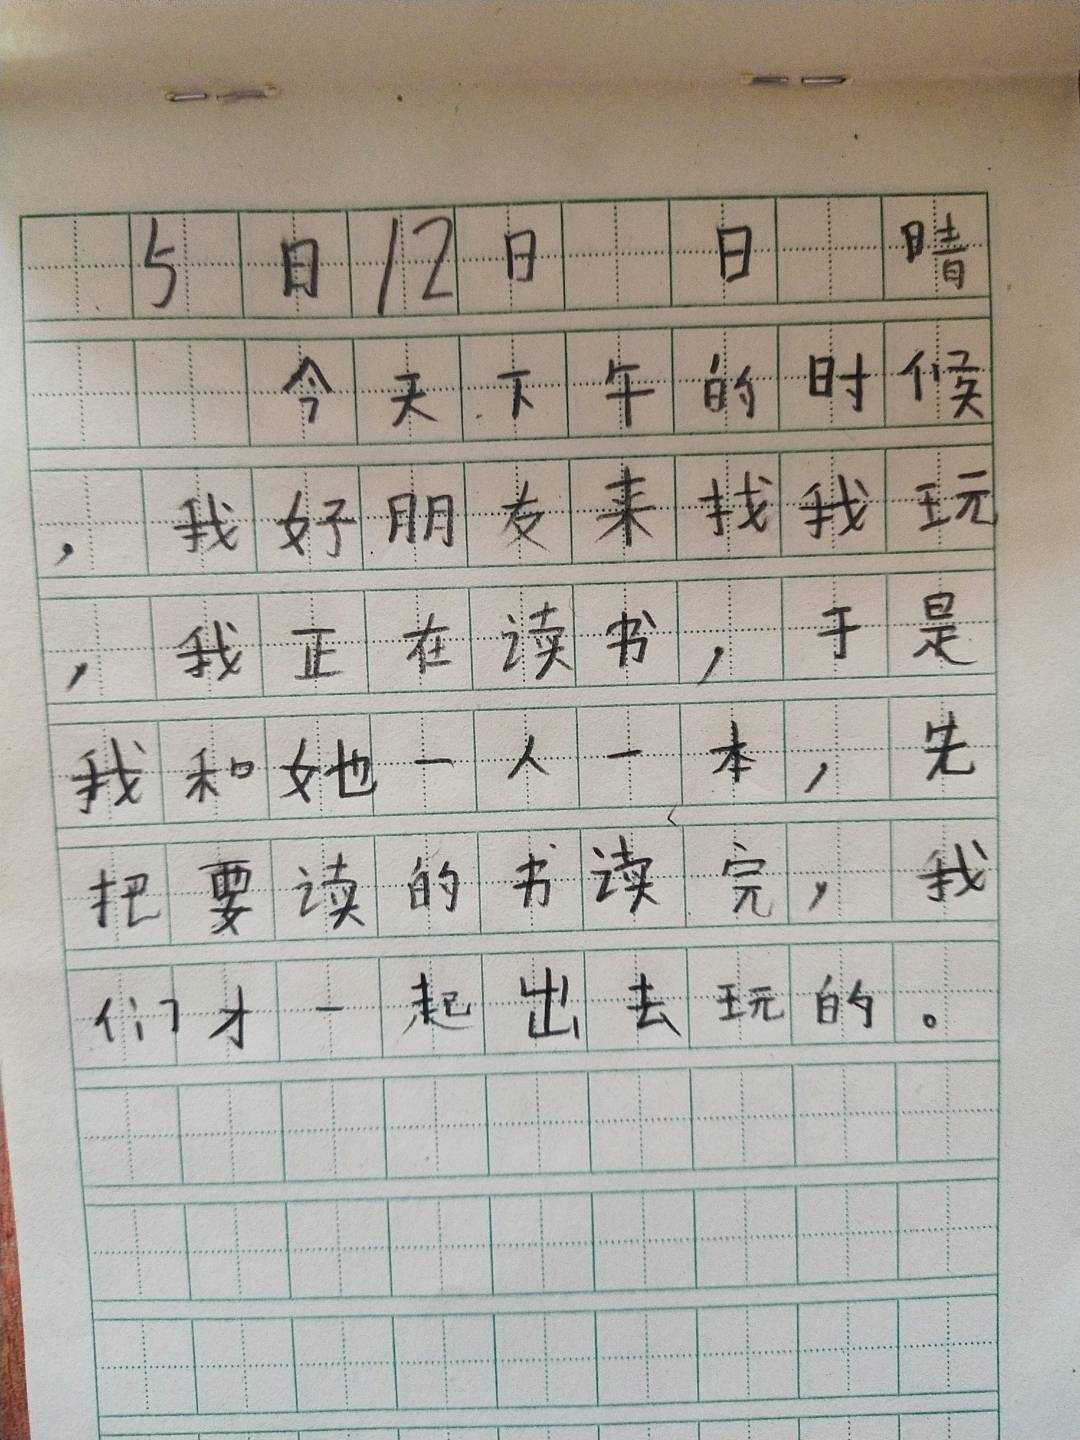 5日12日 日 晴
今天下午的时候
，我好朋友来找我玩
，我正在读书，于是
我和她一人一本，先
把要读的书读完，我
们才一起出去玩的。